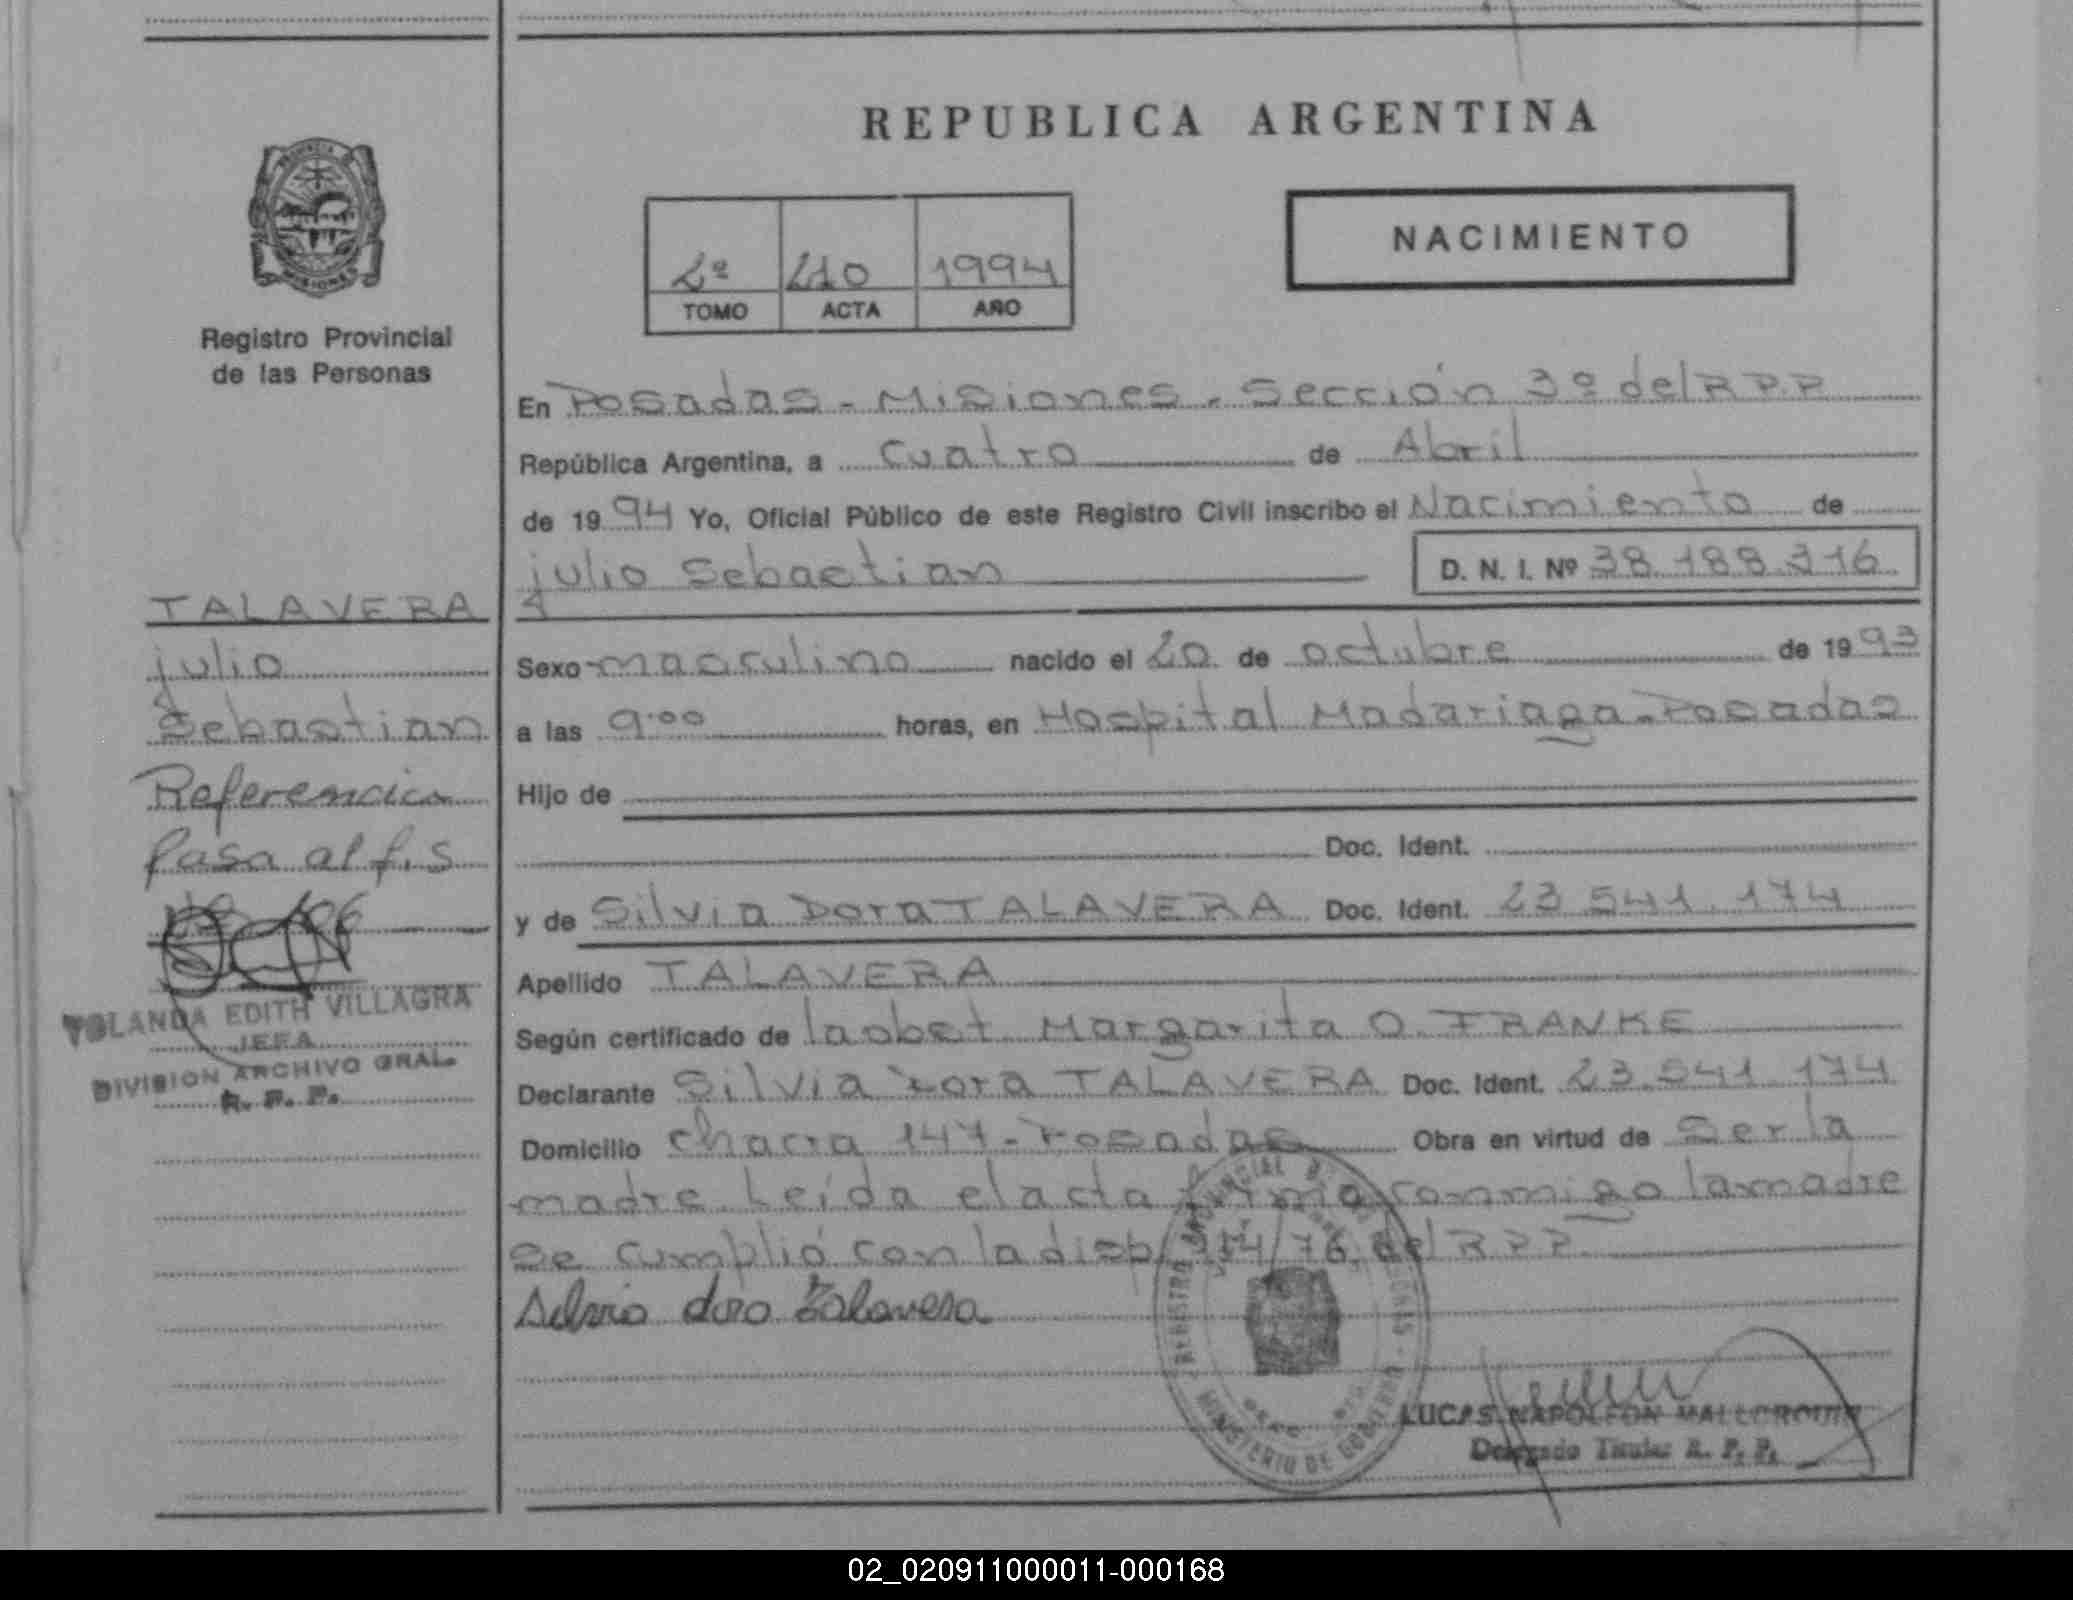 REPUBLICA ARGENTINA
NACIMIENTO
2º 210 1994
TOMO ACTA AÑO
PROVINCIA DE MISIONES
Registro Provincial
de las Personas
En Posadas - Misiones - Sección 3º del R P.P
República Argentina, a cuatro de Abril
de 1994 Yo, Oficial Público de este Registro Civil inscribo el Nacimiento de
julio Sebastian D. N. I. Nº 38.188.316
TALAVERA
julio
Sebastian
Referencia
Pasa al f.s
Sexo masculino nacido el 20 de octubre de 1993
a las 9.00 horas, en Hospital Madariaga-Posadas
Hijo de
Doc. Ident.
y de Silvia Dora TALAVERA Doc. Ident. 23 541.174
Apellido TALAVERA
Según certificado de Margarita O. FRANKE
Declarante Silvia Dora TALAVERA Doc. Ident. 23.541.174
Domicilio chacra 147-Posadas Obra en virtud de Ser la
madre Leída el acta firma conmigo la madre
Se cumplió con la disp. 14/76, del R P P.
Silvia dora Talavera
YOLANDA EDITH VILLAGRA
JEFA
DIVISION ARCHIVO GRAL.
R. P. P.
REGISTRO PROVINCIAL DE LAS PERSONAS - MINISTERIO DE GOBIERNO
LUCAS NAPOLEON MALLORQUIN
Delegado Titular R. P. P.
02_020911000011-000168